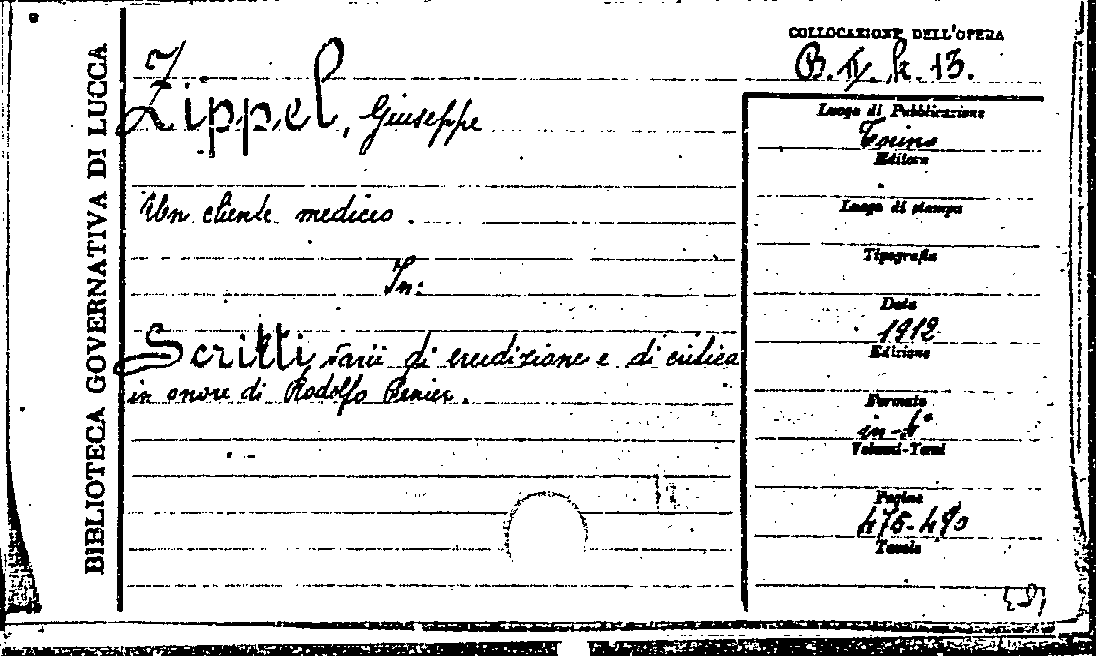 BIBLIOTECA GOVERNATIVA DI LUCCA
COLLOCAZIONE DELL'OPERA
B. h. 13.
Zippel, Giuseppe
Un cliente mediceo.
In:
Scritti varii di erudizione e di critica
in onore di Rodolfo Renier.
Luogo di Pubblicazione
Torino
Editore
Luogo di stampa
Tipografia
Data
1912
Edizione
Formato
in-4°
Volumi-Tomi
Pagine
475-490
Tavole